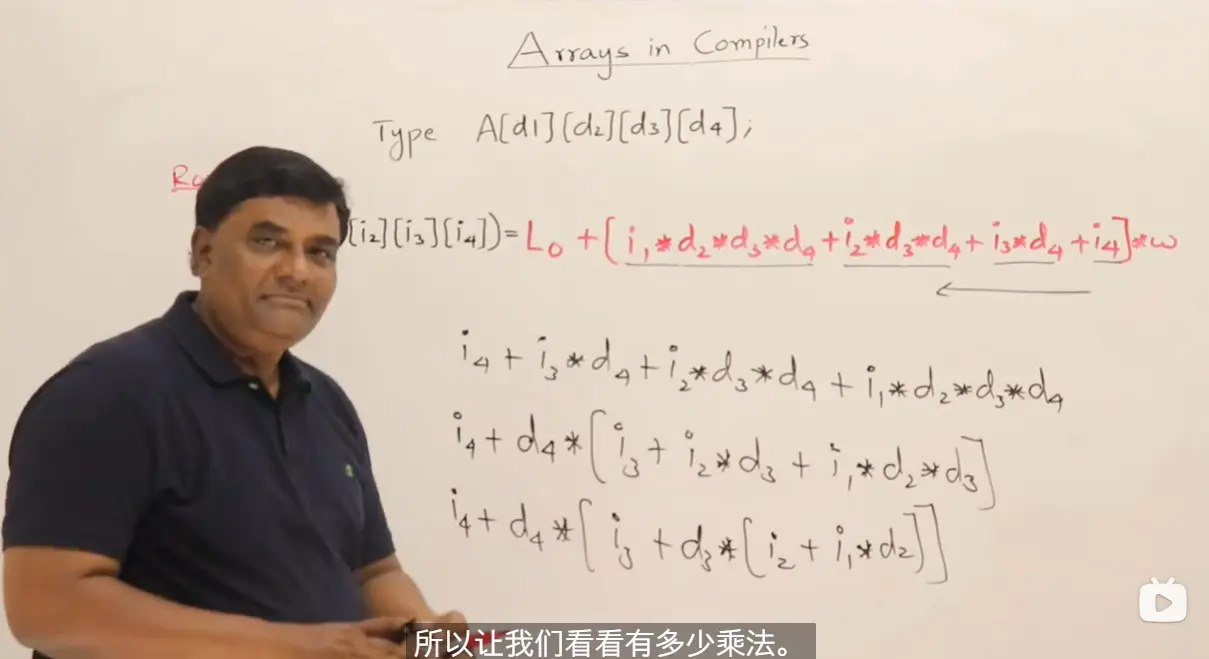 Arrays in Compilers
Type A[d1][d2][d3][d4];
[i2][i3][i4]) = L0 + [i1*d2*d3*d4 + i2*d3*d4 + i3*d4 + i4]*w
i4 + i3*d4 + i2*d3*d4 + i1*d2*d3*d4
i4 + d4*[i3 + i2*d3 + i1*d2*d3]
i4 + d4*[i3 + d3*[i2 + i1*d2]]
所以让我们看看有多少乘法。